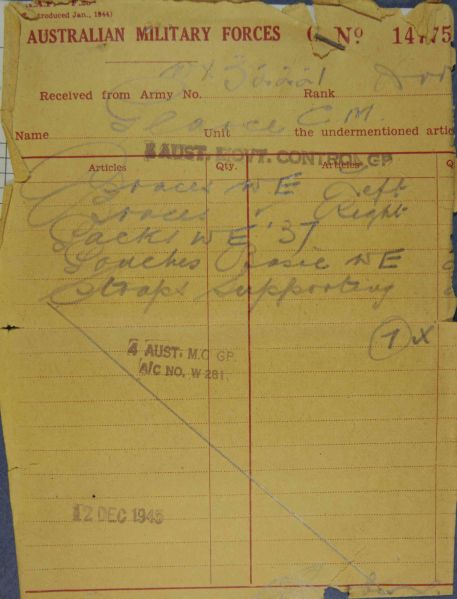 troduced Jan., 1944)
AUSTRALIAN MILITARY FORCES No
Received from Army No. Rank
C.M.
Name Unit the undermentioned artic
4 AUST. MOVT. CONTROL GP
Articles Qty. Articles Q
Braces W E Left
Braces " Right
Packs W E '37
Pouches Basic W E
Straps Supporting
7 X
4 AUST. M.C GP.
A/C NO. W 281.
12 DEC 1945